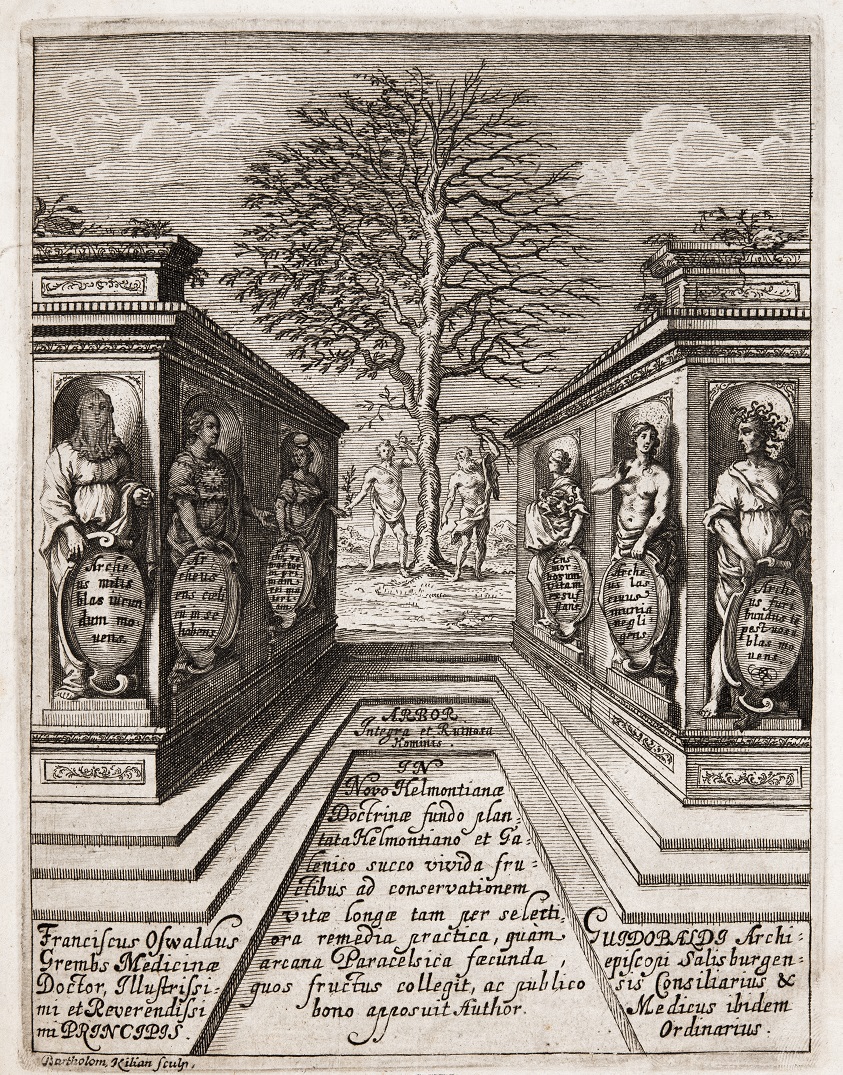 Arche
us mitis
blas iucun
dum mo
vens.
Ar
cheus
ens cœli
in se
habens.
Ens
mor
bosum
vitam
Arche
us las
civus
munia
negli
gens.
Arche
us furi
bundus
blas mo
vens
ARBOR
Integra et Ruinosa
Hominis.
IN
Novo Helmontianæ
Doctrinæ fundo plan-
tata Helmontiano et Ga-
lenico succo vivida fru-
ctibus ad conservationem
vitæ longæ tam per selecti-
ora remedia practica, quàm
arcana Paracelsica fæcunda,
quos fructus collegit, ac publico
bono apposuit Author.
Franciſcus Oſwaldus
Grembs Medicinæ
Doctor, Illuſtriſſi-
mi et Reverendiſſi
mi PRINCIPIS.
GUIDOBALDI Archi-
episcopi Salisburgen-
sis Consiliarius &
Medicus ibidem
Ordinarius.
Bartholom. Kilian sculp.